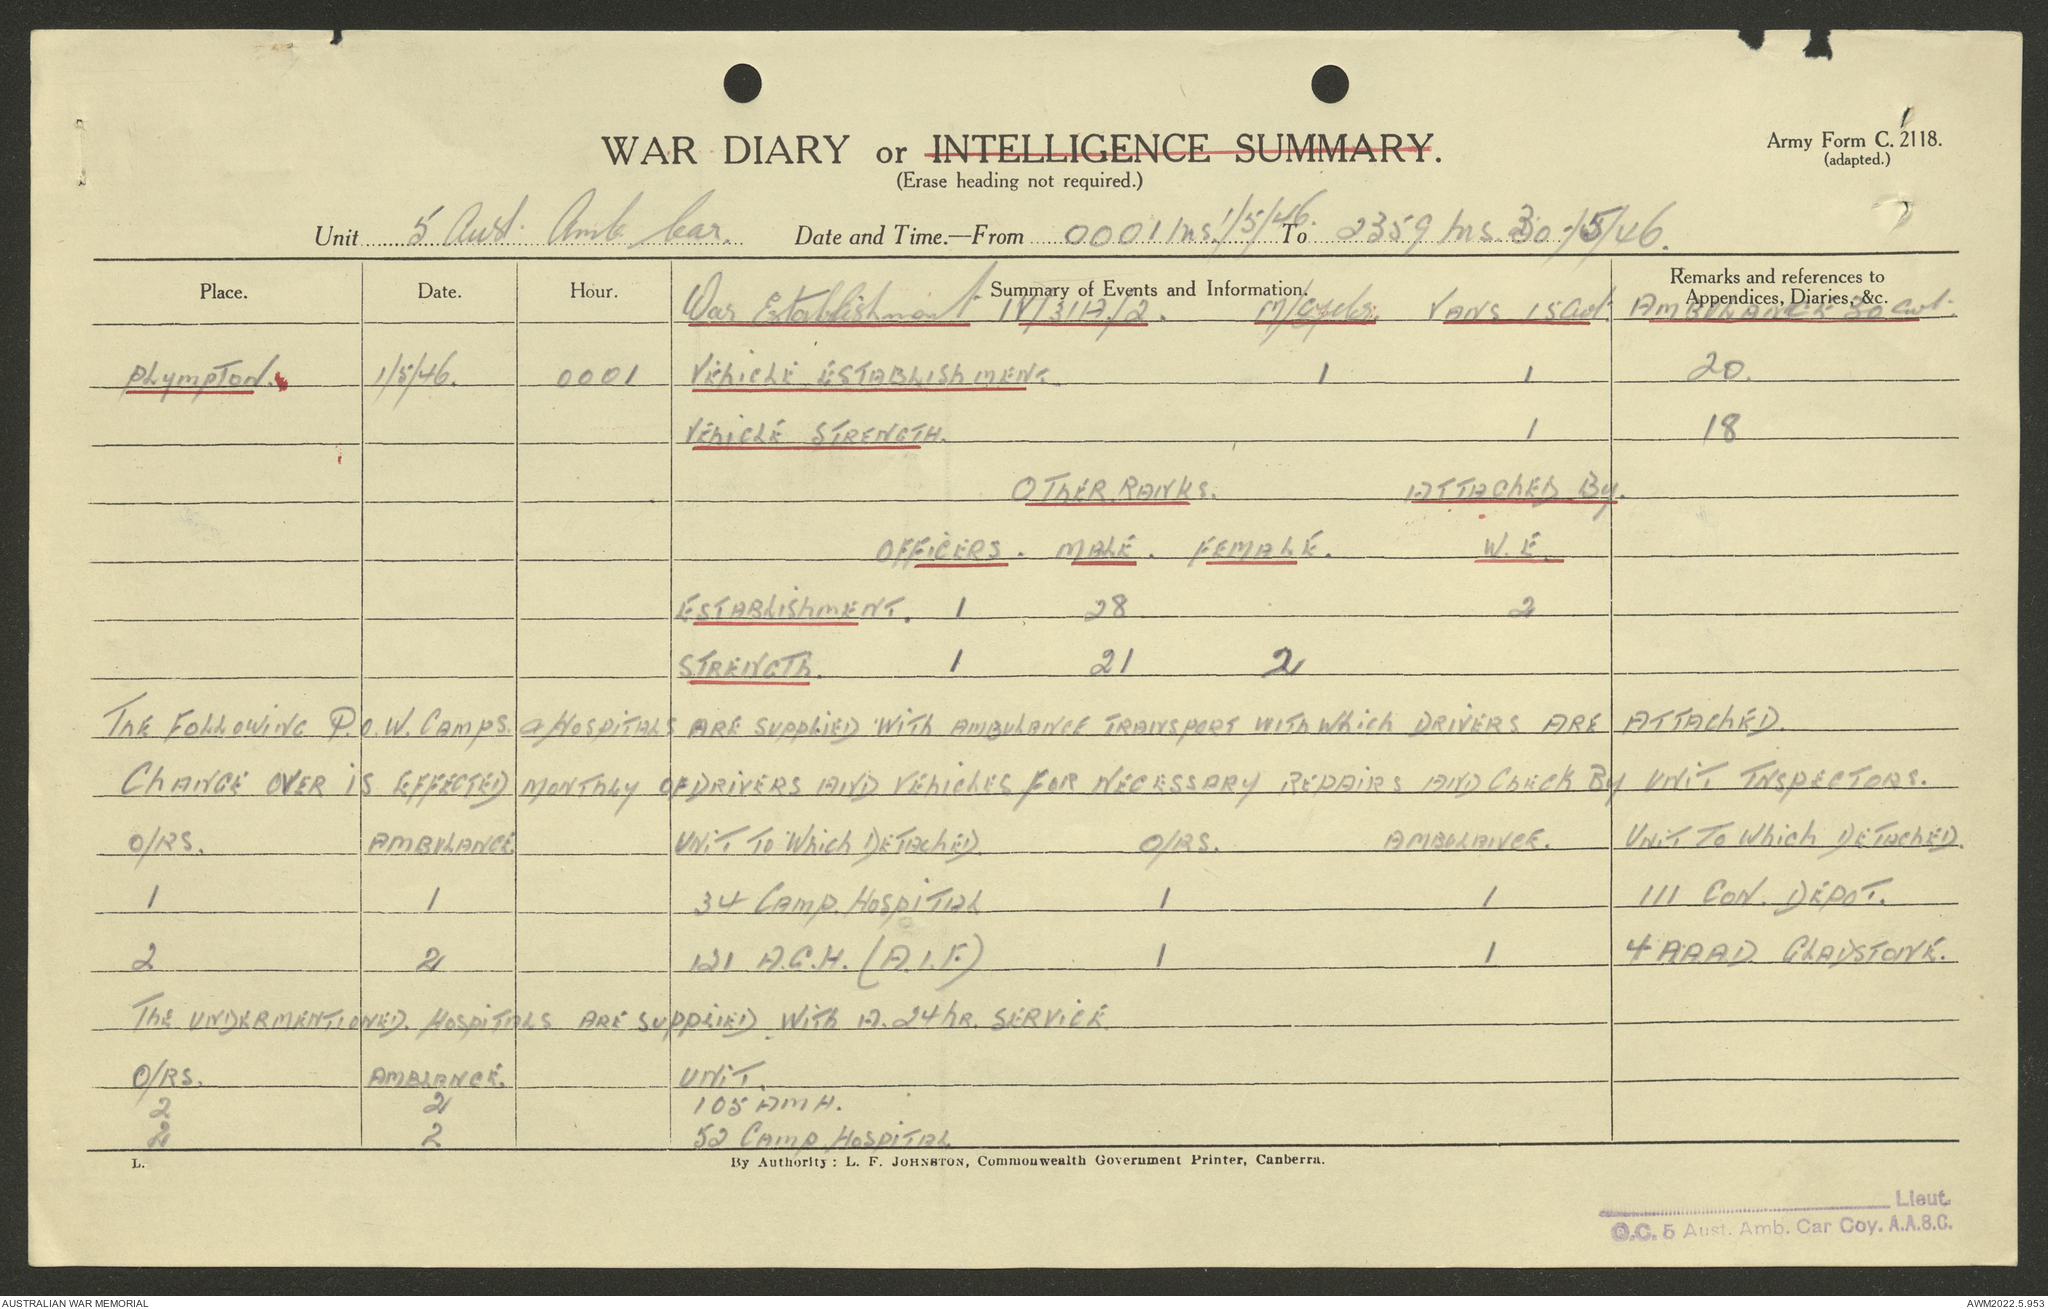 1
WAR DIARY or INTELLIGENCE SUMMARY.
Army Form C. 2118.
(adapted.)
(Erase heading not required.)
Unit 5 Aust. Amb Car. Date and Time.—From 0001 hrs. 1/5/46. To 2359 hrs 30/5/46.
Place. Date. Hour. Summary of Events and Information. Remarks and references to Appendices, Diaries, &c.
War Establishment IV/31A/2. M/Cycles. VANS 15 Cwt. AMBULANCE 30 Cwt.
PLYMPTON. 1/5/46. 0001 VEHICLE ESTABLISHMENT. 1 1 20.
VEHICLE STRENGTH. 1 18
OTHER RANKS. ATTACHED By.
OFFICERS. MALE. FEMALE. W.E.
ESTABLISHMENT. 1 28 2
STRENGTH. 1 21 2
THE FOLLOWING P.O.W. CAMPS. & HOSPITALS ARE SUPPLIED WITH AMBULANCE TRANSPORT WITH WHICH DRIVERS ARE ATTACHED.
CHANGE OVER IS EFFECTED MONTHLY OF DRIVERS AND VEHICLES FOR NECESSARY REPAIRS AND CHECK By UNIT INSPECTORS.
O/RS. AMBULANCE UNIT TO WHICH DETACHED O/RS. AMBULANCE. UNIT TO WHICH DETACHED.
1 1 34 CAMP. HOSPITAL 1 1 111 CON. DEPOT.
2 2 121 A.G.H. (A.I.F.) 1 1 4 AAAD GLADSTONE.
THE UNDERMENTIONED. HOSPITALS ARE SUPPLIED WITH A. 24 hr. SERVICE.
O/RS. AMBLANCE. UNIT.
2 2 105 AMH.
2 2 52 CAMP HOSPITAL
L. By Authority: L. F. JOHNSTON, Commonwealth Government Printer, Canberra.
Lieut.
O.C. 5 Aust. Amb. Car Coy. A.A.S.C.
AUSTRALIAN WAR MEMORIAL
AWM2022.5.953